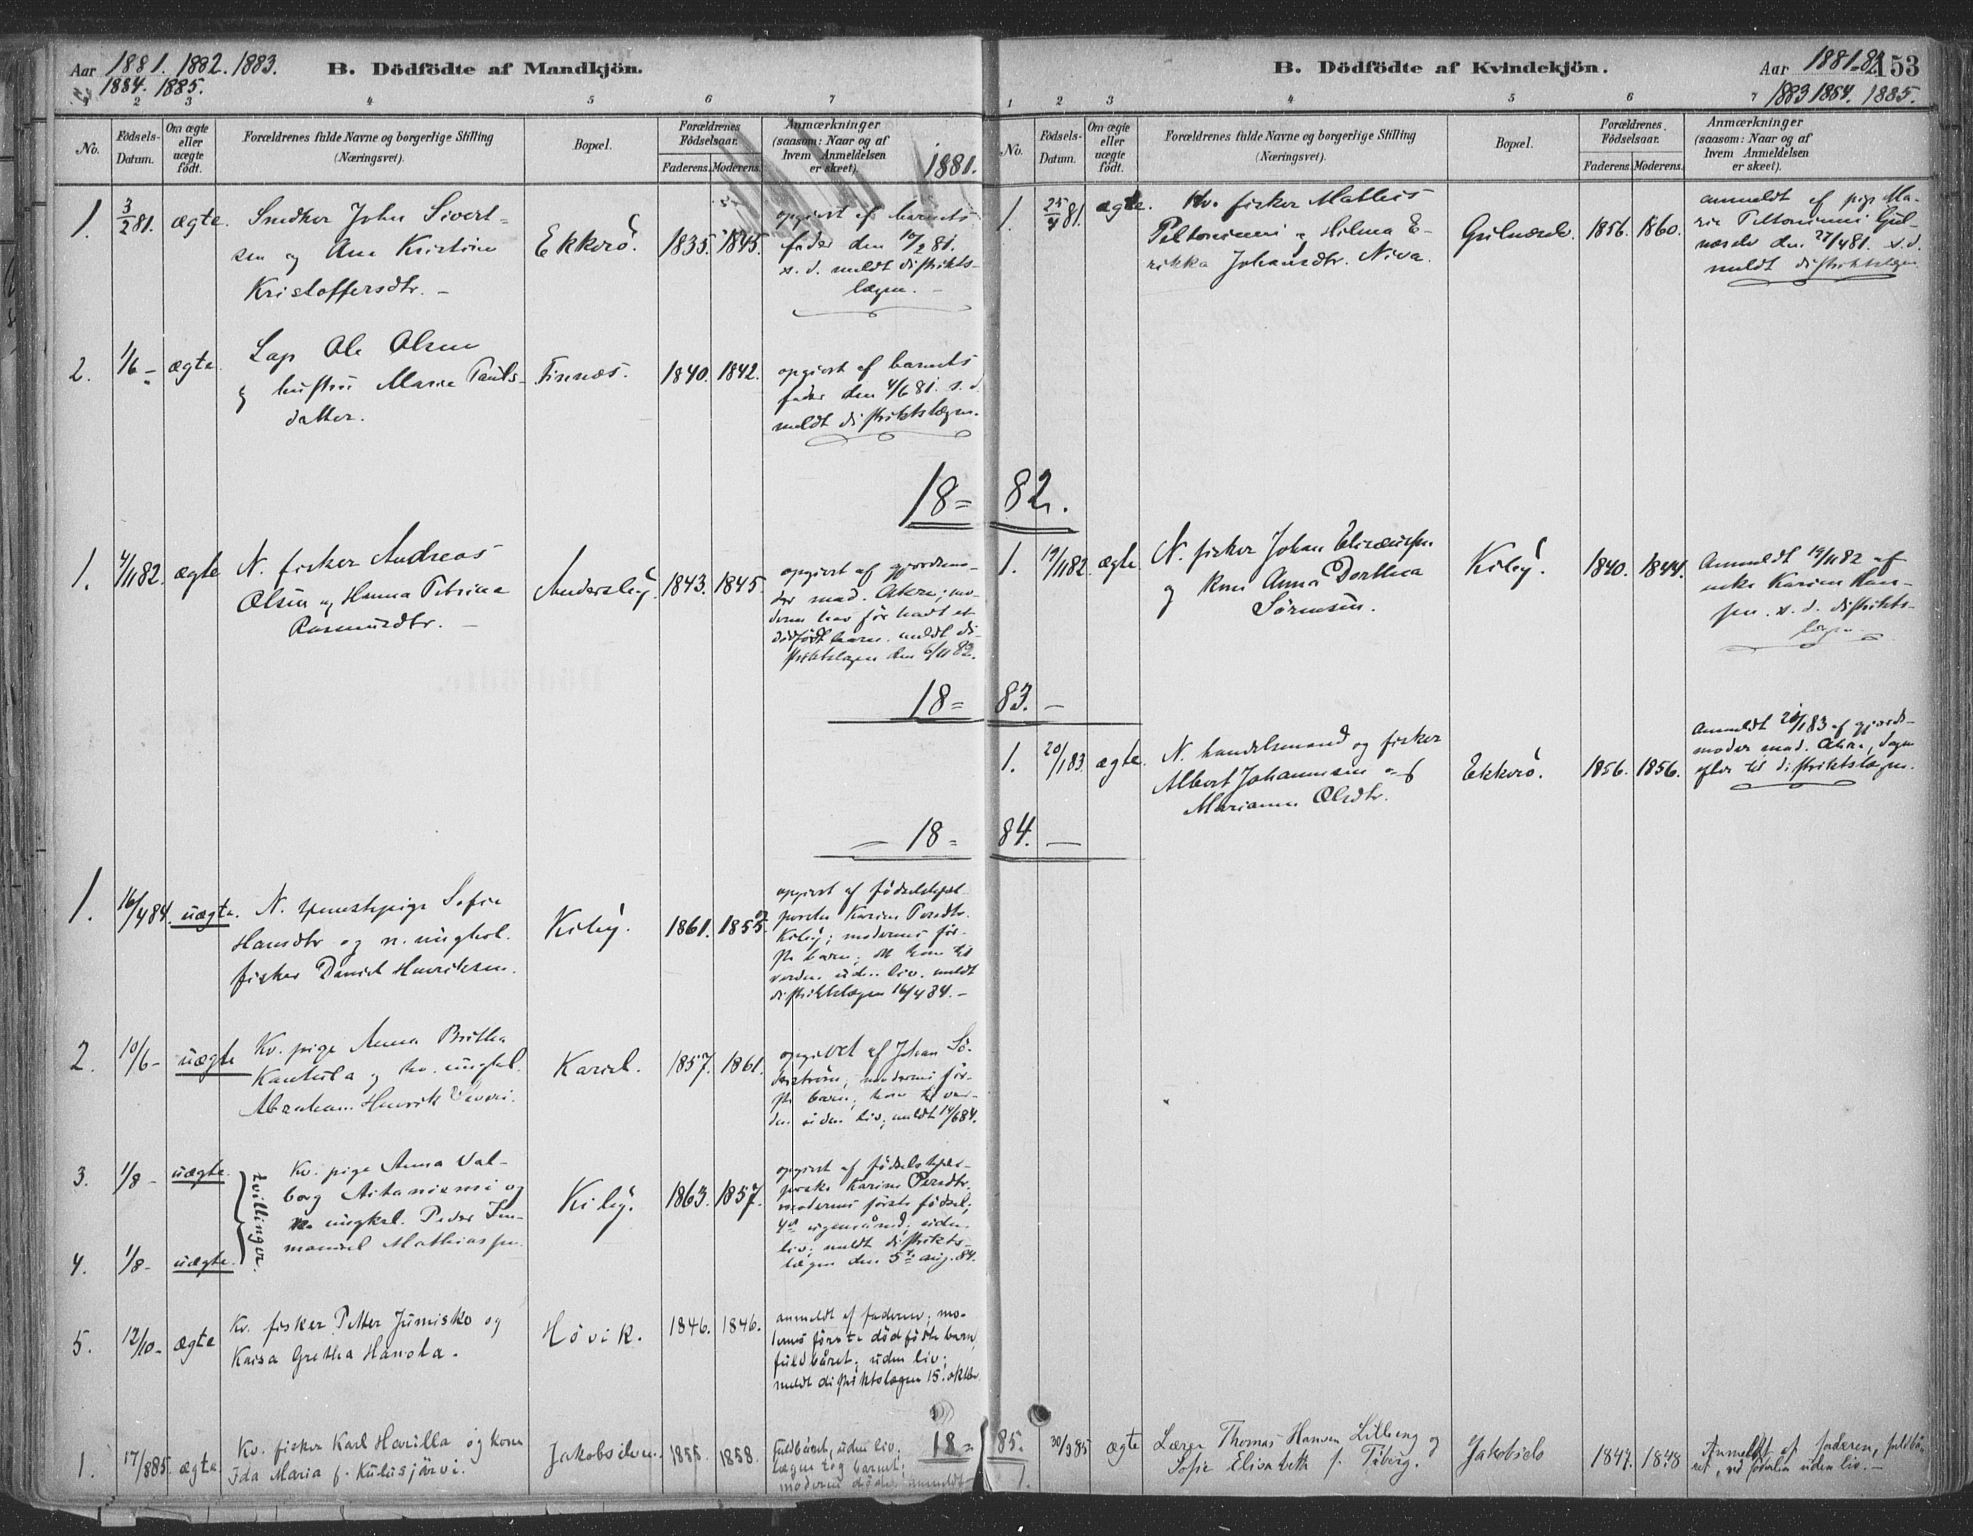 Aar 1881. 1882. 1883.
1884. 1885.
B. Dödfödte af Mandkjön.
1 2 3 4 5 6 7
No.
Födsels-
Datum.
Om ægte
eller
uægte
födt.
Forældrenes fulde Navne og borgerlige Stilling
(Næringsvei).
Bopæl.
Forældrenes
Födselsaar.
Faderens. Moderens.
Anmærkninger
(saasom: Naar og af
hvem Anmeldelsen
er skeet).
1881.
1. 3/2 81. ægte. Snedker John Sivert-
sen og Ane Kristine
Kristoffersdtr. –
Ekkerö. 1835. 1845.
opgivet af barnets
fader den 10/2 81.
s. d. meldt distrikts-
lægen. –
2. 1/6 – ægte. Lap Ole Olsen
og hustru Marie Pauls-
datter.
Finnæs. 1840. 1842.
opgivet af barnets
fader den 4/6 81. s. d.
meldt distriktslægen.
18 = 82.
1. 4/11 82. ægte N. fisker Andreas
Olsen og Hanna Petrine
Rasmusdtr. –
Andersby. 1843. 1845.
opgivet af gjordemo-
der mad. Akre; mo-
deren har før hadt et
dödfödt barn. meldt di-
striktslægen den 6/11 82.
18 = 83. –
– 18 = 84. –
1. 16/4 84. uægte. N. tjenestepige Sofie
Hansdtr og n. ungkal.
fisker Daniel Henriksen.
Kiby. 1861. 1855.
opgivet af födselshjæl-
persken Karine Persdtr.
Kiby; moderens för-
ste barn; kom til
verden uden liv. meldt
distriktslægen 16/4 84. –
2. 10/6 – uægte Kv. pige Anna Britha
og kv. ungkl.
Abraham Henrik
Kariel. 1857. 1861.
opgivet af Johan Sö-
derström; moderens för-
ste barn; kom til ver-
den uden liv; meldt 14/6 84.
3. 1/8 – uægte.
4. 1/8 – uægte.
tvillinger.
Kv. pige Anna Val-
borg Aitaniemi og
n. ungkal. Peder Im-
manuel Mathiassen.
Kiby. 1863. 1857.
opgivet af födselshjæl-
perske Karine Persdtr.
moderens förste födsel;
uden
liv; meldt distrikts-
lægen den 5te aug. 84.
5. 12/10 – ægte Kv. fisker Petter Jumisko og
Kaisa Gretha Hanola.
Hövik. 1846. 1846.
anmeldt af faderen; mo-
derens förste dödfödte barn,
fuldbåret; uden liv;
meldt distriktslægen 15. oktbr.
18 = 85.
1. 17/8 85 ægte Kv. fisker Karl Harilla og kone
Ida Maria f. Kulusjärvi.
Jakobselven. 1855. 1858.
Fuldbåret, uden liv;
barnet;
moderens döde; anmeldt
B. Dödfödte af Kvindekjön.
Aar 1881. 82. 153
1883 1884. 1885.
1 2 3 4 5 6 7
No.
Födsels-
Datum.
Om ægte
eller
uægte
födt.
Forældrenes fulde Navne og borgerlige Stilling
(Næringsvei).
Bopæl.
Forældrenes
Födselsaar.
Faderens. Moderens.
Anmærkninger
(saasom: Naar og af
hvem Anmeldelsen
er skeet).
1. 25/4 81. ægte. Kv. fisker Mathis
Peltoniemi og Hilma E-
rikka Johansdtr. Niva.
1856. 1860.
anmeldt af pige Ma-
rie Peltoniemi
den 27/4 81. s. d.
meldt distriktslægen.
1. 19/11 82. ægte N. fisker Johan Eliseussen
og kone Anna Dorthea
Sörensen.
Kiby. 1840. 1844.
Anmeldt 19/11 82 af
enke Karen Han-
sen. s. d. distrikts-
lægen. –
1. 20/1 83. ægte. N. handelsmand og fisker
Albert Johannesen og
Marianne Olsdtr.
Ekkerö. 1856. 1856.
Anmeldt 20/1 83 af gjorde-
moder mad. Akre, dagen
efter til distriktslægen.
1. 30/9 85 ægte Lærer Thomas Hansen Lilleeng og
Sofie Elisabeth f. Tiberg.
Jakobselv 1847. 1848
Anmeldt af faderen, fuldbå-
ret, ved födselen uden liv. –